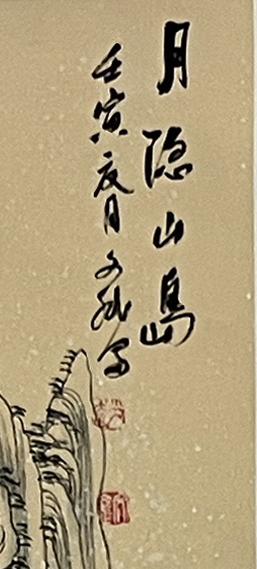 月隐山岛
壬寅夏月文斌写